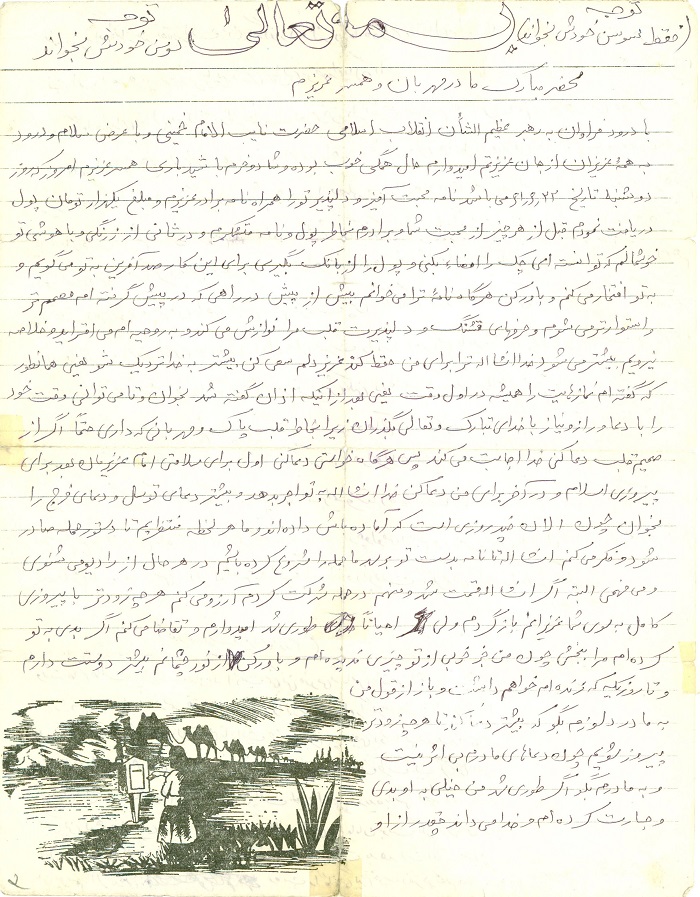 توجه
بسمه تعالی
توجه
(فقط سوسن خودش بخواند)
سوسن خودش بخواند
محضر مبارک مادر مهربان و همسر عزیزم
با درود فراوان به رهبر عظیم الشأن انقلاب اسلامی حضرت نایب الامام خمینی و با عرض سلام و درود
به همهٔ عزیزان از جان عزیزترم امیدوارم حال همگی خوب بوده و شاد و خرم باشید باری همسر عزیزم امروز که روز
دوشنبه تاریخ میباشد نامه محبت آمیز و دلپذیر تو را همراه نامه برادر عزیزم و مبلغ یکهزار تومان پول
دریافت نمودم قبل از هر چیز از محبت شما و برادرم بخاطر پول و نامه متشکرم و در ثانی از زرنگی و باهوشی تو
خوشحالم که توانسته ای چک را امضاء بکنی و پول را از بانک بگیری برای این کار صد آفرین به تو می گویم و
به تو افتخار می کنم و باور کن هر گاه نامهٔ ترا می خوانم بیش از پیش در راهی که در پیش گرفته ام مصمم تر
و استوارتر می شوم و حرفهای قشنگ و دلپذیرت قلب مرا نوازش می کند و به روحیه ام می افزاید و خلاصه
نیرویم بیشتر می شود خدا انشاء اله ترا برای من حفظ کند عزیز دلم سعی کن بیشتر به خدا نزدیک شوی همانطور
که گفته ام نمازهایت را همیشه در اول وقت یعنی بعد از اینکه اذان گفته شد بخوان و تا می توانی وقت خود
را با دعا و راز و نیاز با خدای تبارک و تعالی بگذران زیرا بخاطر قلب پاک و مهربانی که داری حتماً اگر از
صمیم قلب دعا کنی خدا اجابت می کند پس هر گاه خواستی دعا کنی اول برای سلامتی امام عزیزمان بعد برای
پیروزی اسلام و در آخر برای من دعا کن خدا انشاء اله به تو اجر بدهد و بیشتر دعای توسل و دعای فرج را
بخوان چون الان چند روزی است که آماده باش داده اند و ما هر لحظه منتظریم تا دستور حمله صادر
شود و فکر می کنم انشاء اله تا نامه بدست تو برسد ما حمله را شروع کرده باشیم در هر حال از رادیو می شنوی
و می فهمی البته اگر انشاء اله قسمت شد و منهم در حمله شرکت کردم آرزو می کنم هر چه زودتر با پیروزی
کامل به سوی شما عزیزانم باز گردم ولی احیاناً طوری شد امیدوارم و تقاضا می کنم اگر بدی به تو
کرده ام مرا ببخشی چون من جز خوبی از تو چیزی ندیده ام و باور کن از نور چشمانم بیشتر دوستت دارم
و تا روزیکه که زنده ام خواهم داشت و باز از قول من
به مادر دلسوزم بگو که بیشتر دعا کند تا هر چه زودتر
پیروز شویم چون دعاهای مادرم بی اثر نیست
و به مادرم بگو اگر طوری شد من خیلی به او بدی
و جسارت کرده ام و خدا می داند چقدر از او
۲